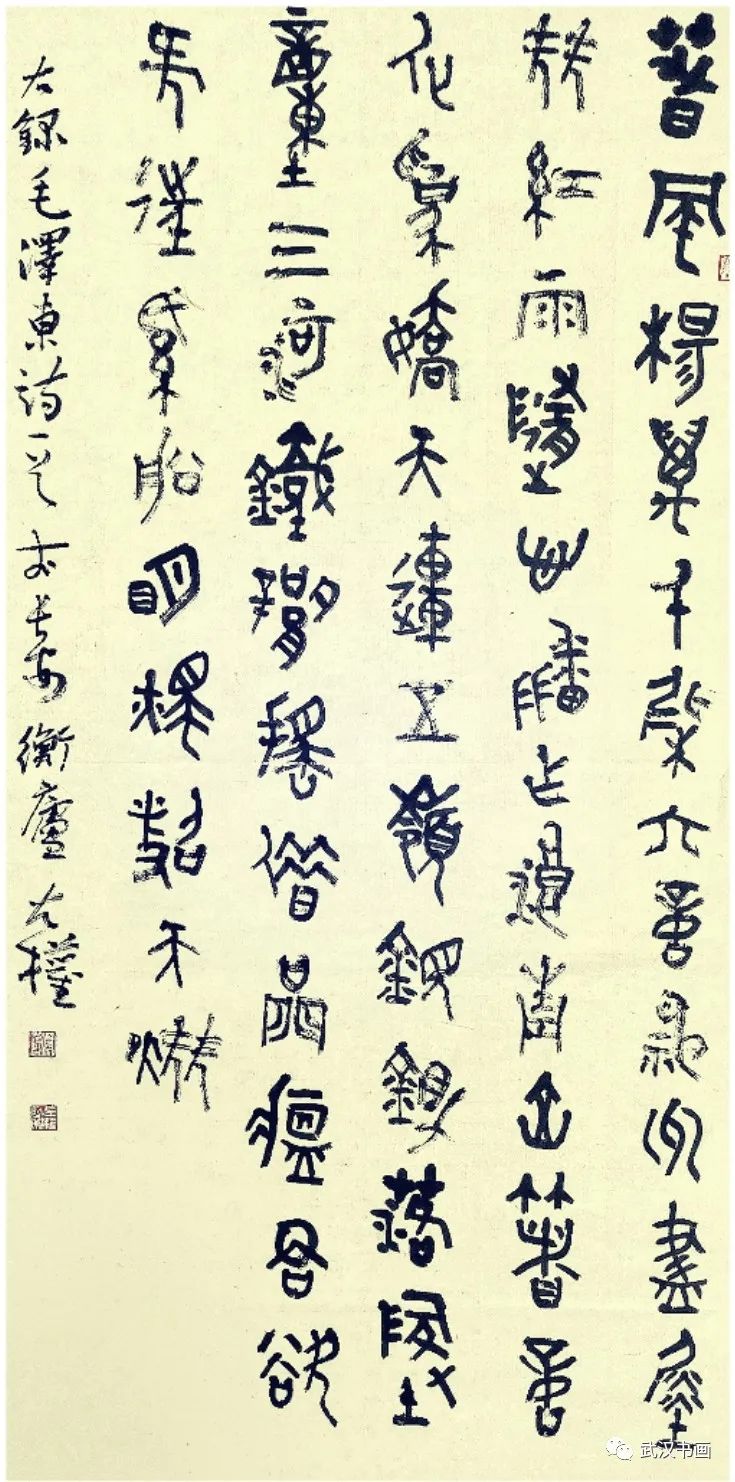 春風楊萬千條六意神州盡舜
堯紅雨隨心翻作浪青山著意
化為橋天連五嶺銀鋤落地
動三河鐵臂搖借問瘟君欲
何往紙船明燭照天燒
右錄毛澤東詩一首 於長安衡廬
武汉书画